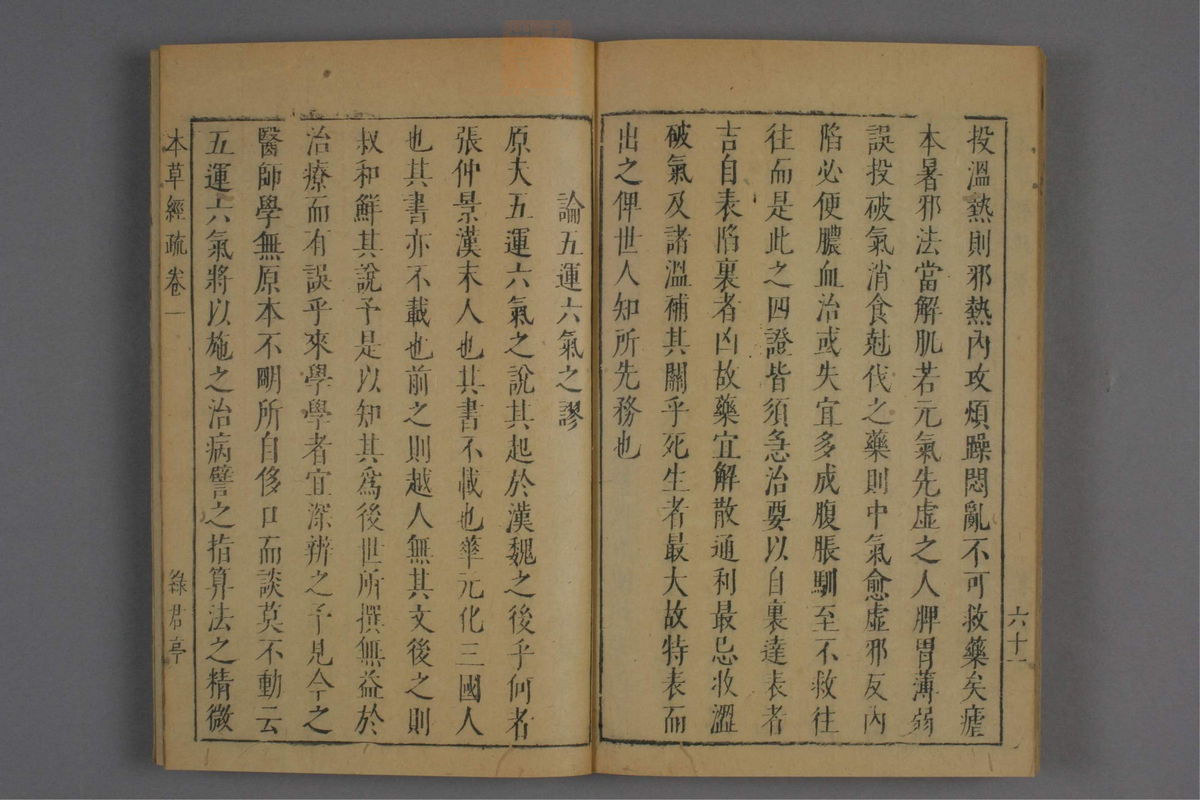 投溫熱則邪熱內攻煩躁悶亂不可救藥矣瘧
本暑邪法當解肌若元氣先虛之人脾胃薄弱
誤投破氣消食尅伐之藥則中氣愈虛邪反內
陷必便膿血治或失宜多成腹脹馴至不救往
往而是此之四證皆須急治要以自裏達表者
吉自表陷裏者凶故藥宜解散通利最忌收澀
破氣及諸溫補其關乎死生者最大故特表而
出之俾世人知所先務也
六十一
論五運六氣之謬
原夫五運六氣之說其起於漢魏之後乎何者
張仲景漢末人也其書不載也華元化三國人
也其書亦不載也前之則越人無其文後之則
叔和鮮其說予是以知其爲後世所撰無益於
治療而有誤乎來學學者宜深辨之予見今之
醫師學無原本不明所自侈口而談莫不動云
五運六氣將以施之治病譬之指算法之精微
本草經疏卷一
綠君亭